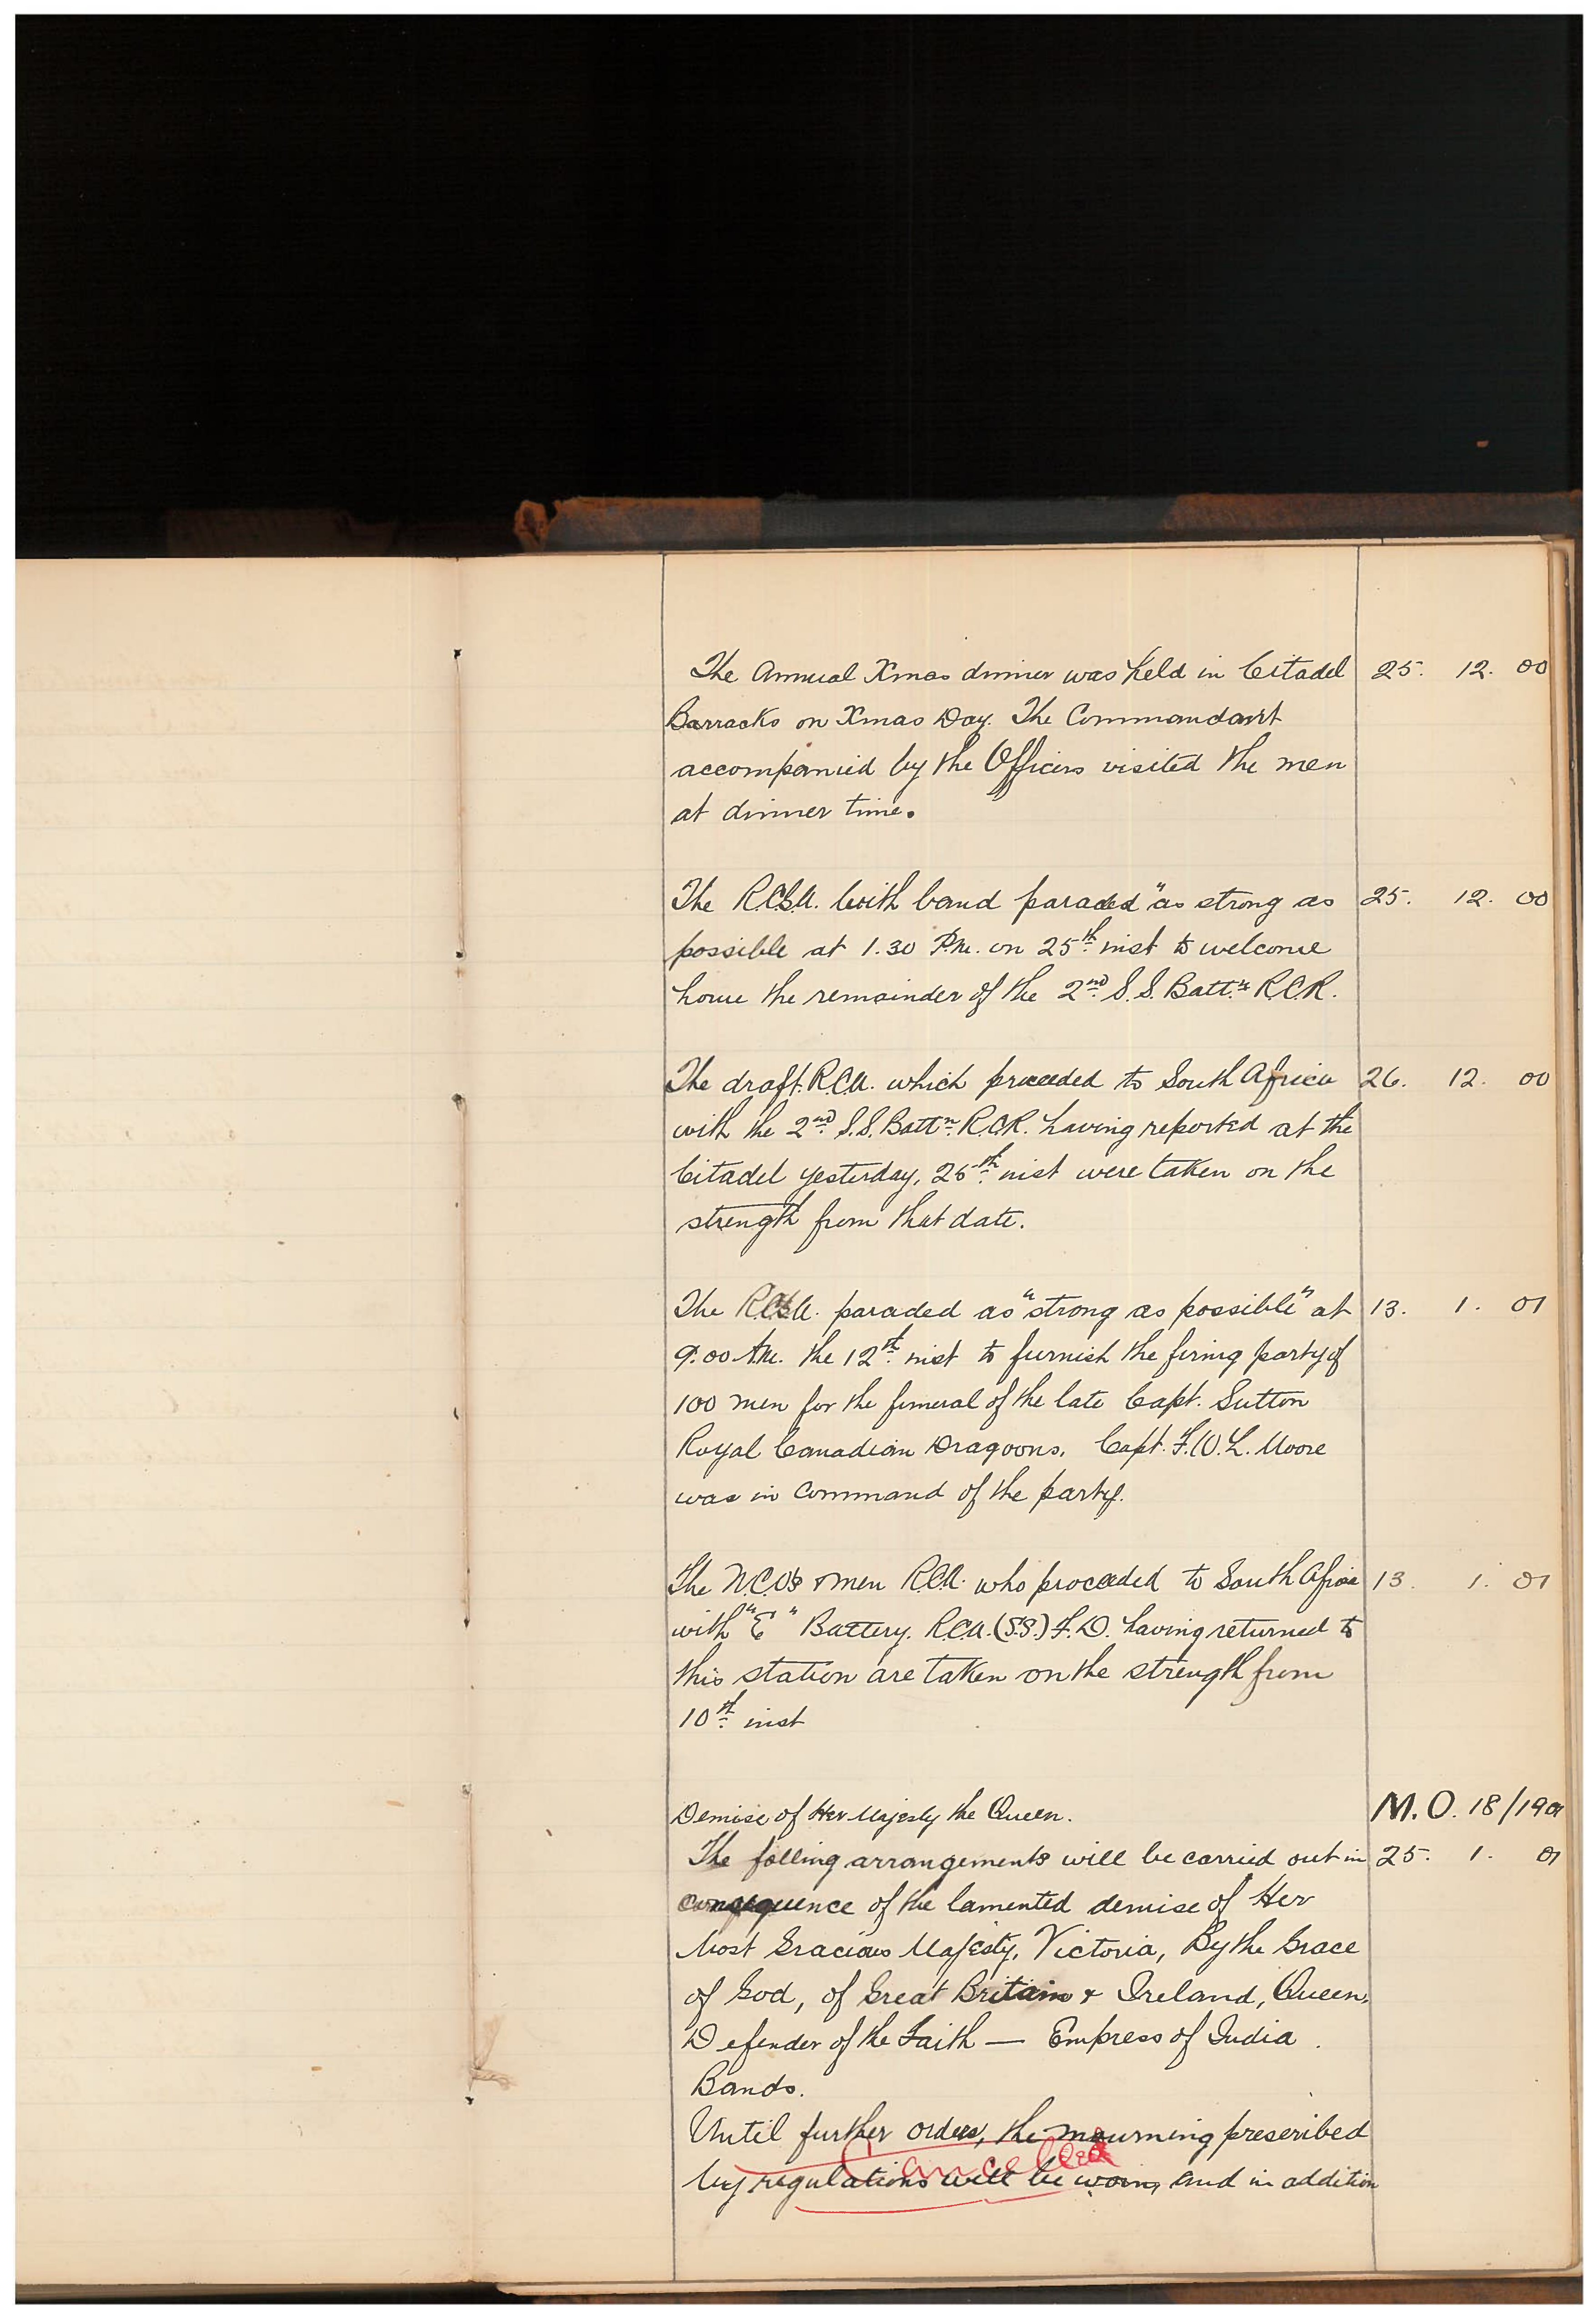 The Annual Xmas dinner was held in Citadel 25. 12. 00
Barracks on Xmas Day. The Commandant
accompanied by the Officers visited the men
at dinner time.
The R.C.G.A. with band paraded "as strong as 25. 12. 00
possible at 1.30 P.M. on 25th inst to welcome
home the remainder of the 2nd S.S. Battn R.C.R.
The draft. R.C.A. which proceeded to South Africa 26. 12. 00
with the 2nd S.S. Battn R.C.R. having reported at the
Citadel yesterday, 25th inst were taken on the
strength from that date.
The R.C.G.A. paraded as "strong as possible" at 13. 1. 01
9.00 A.M. the 12th inst to furnish the firing party of
100 men for the funeral of the late Capt. Sutton
Royal Canadian Dragoons. Capt. F.W.L. Moore
was in command of the party.
The N.C.O's & men R.C.A. who proceeded to South Africa 13. 1. 01
with "E" Battery. R.C.A. (S.S.) F.D. having returned to
this station are taken on the strength from
10th inst
Demise of Her Majesty the Queen. M.O. 18/1901
The folling arrangements will be carried out in 25. 1. 01
consequence of the lamented demise of Her
Most Gracious Majesty, Victoria, By the Grace
of God, of Great Britain & Ireland, Queen,
Defender of the Faith — Empress of India.
Bands.
Until further orders, the mourning prescribed
Cancelled
by regulations will be worn, and in addition